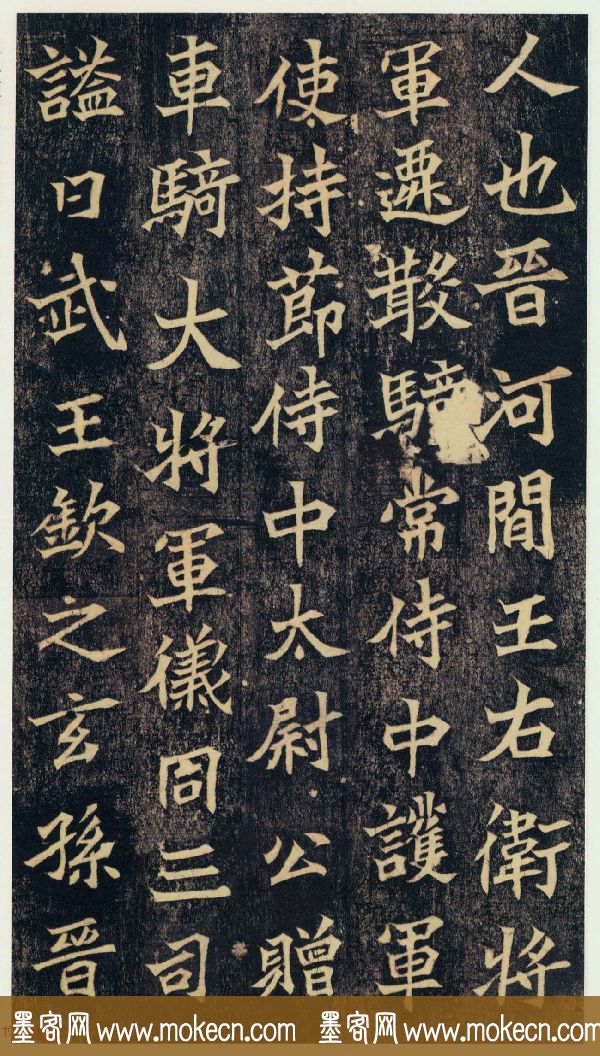 人也晉河間王右衛將
軍遷散騎常侍中護軍
使持節侍中太尉公贈
車騎大將軍儀同三司
謚曰武王欽之玄孫晉
墨客网 www.mokecn.com 墨客网 www.mokecn.com